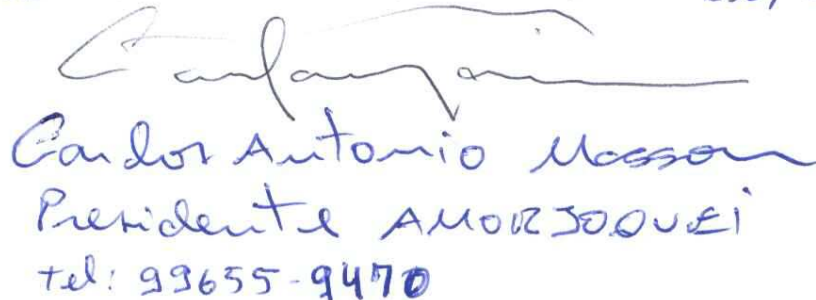 Carlos Antonio Masson
Presidente AMORJOQUEi
tel: 99655-9470